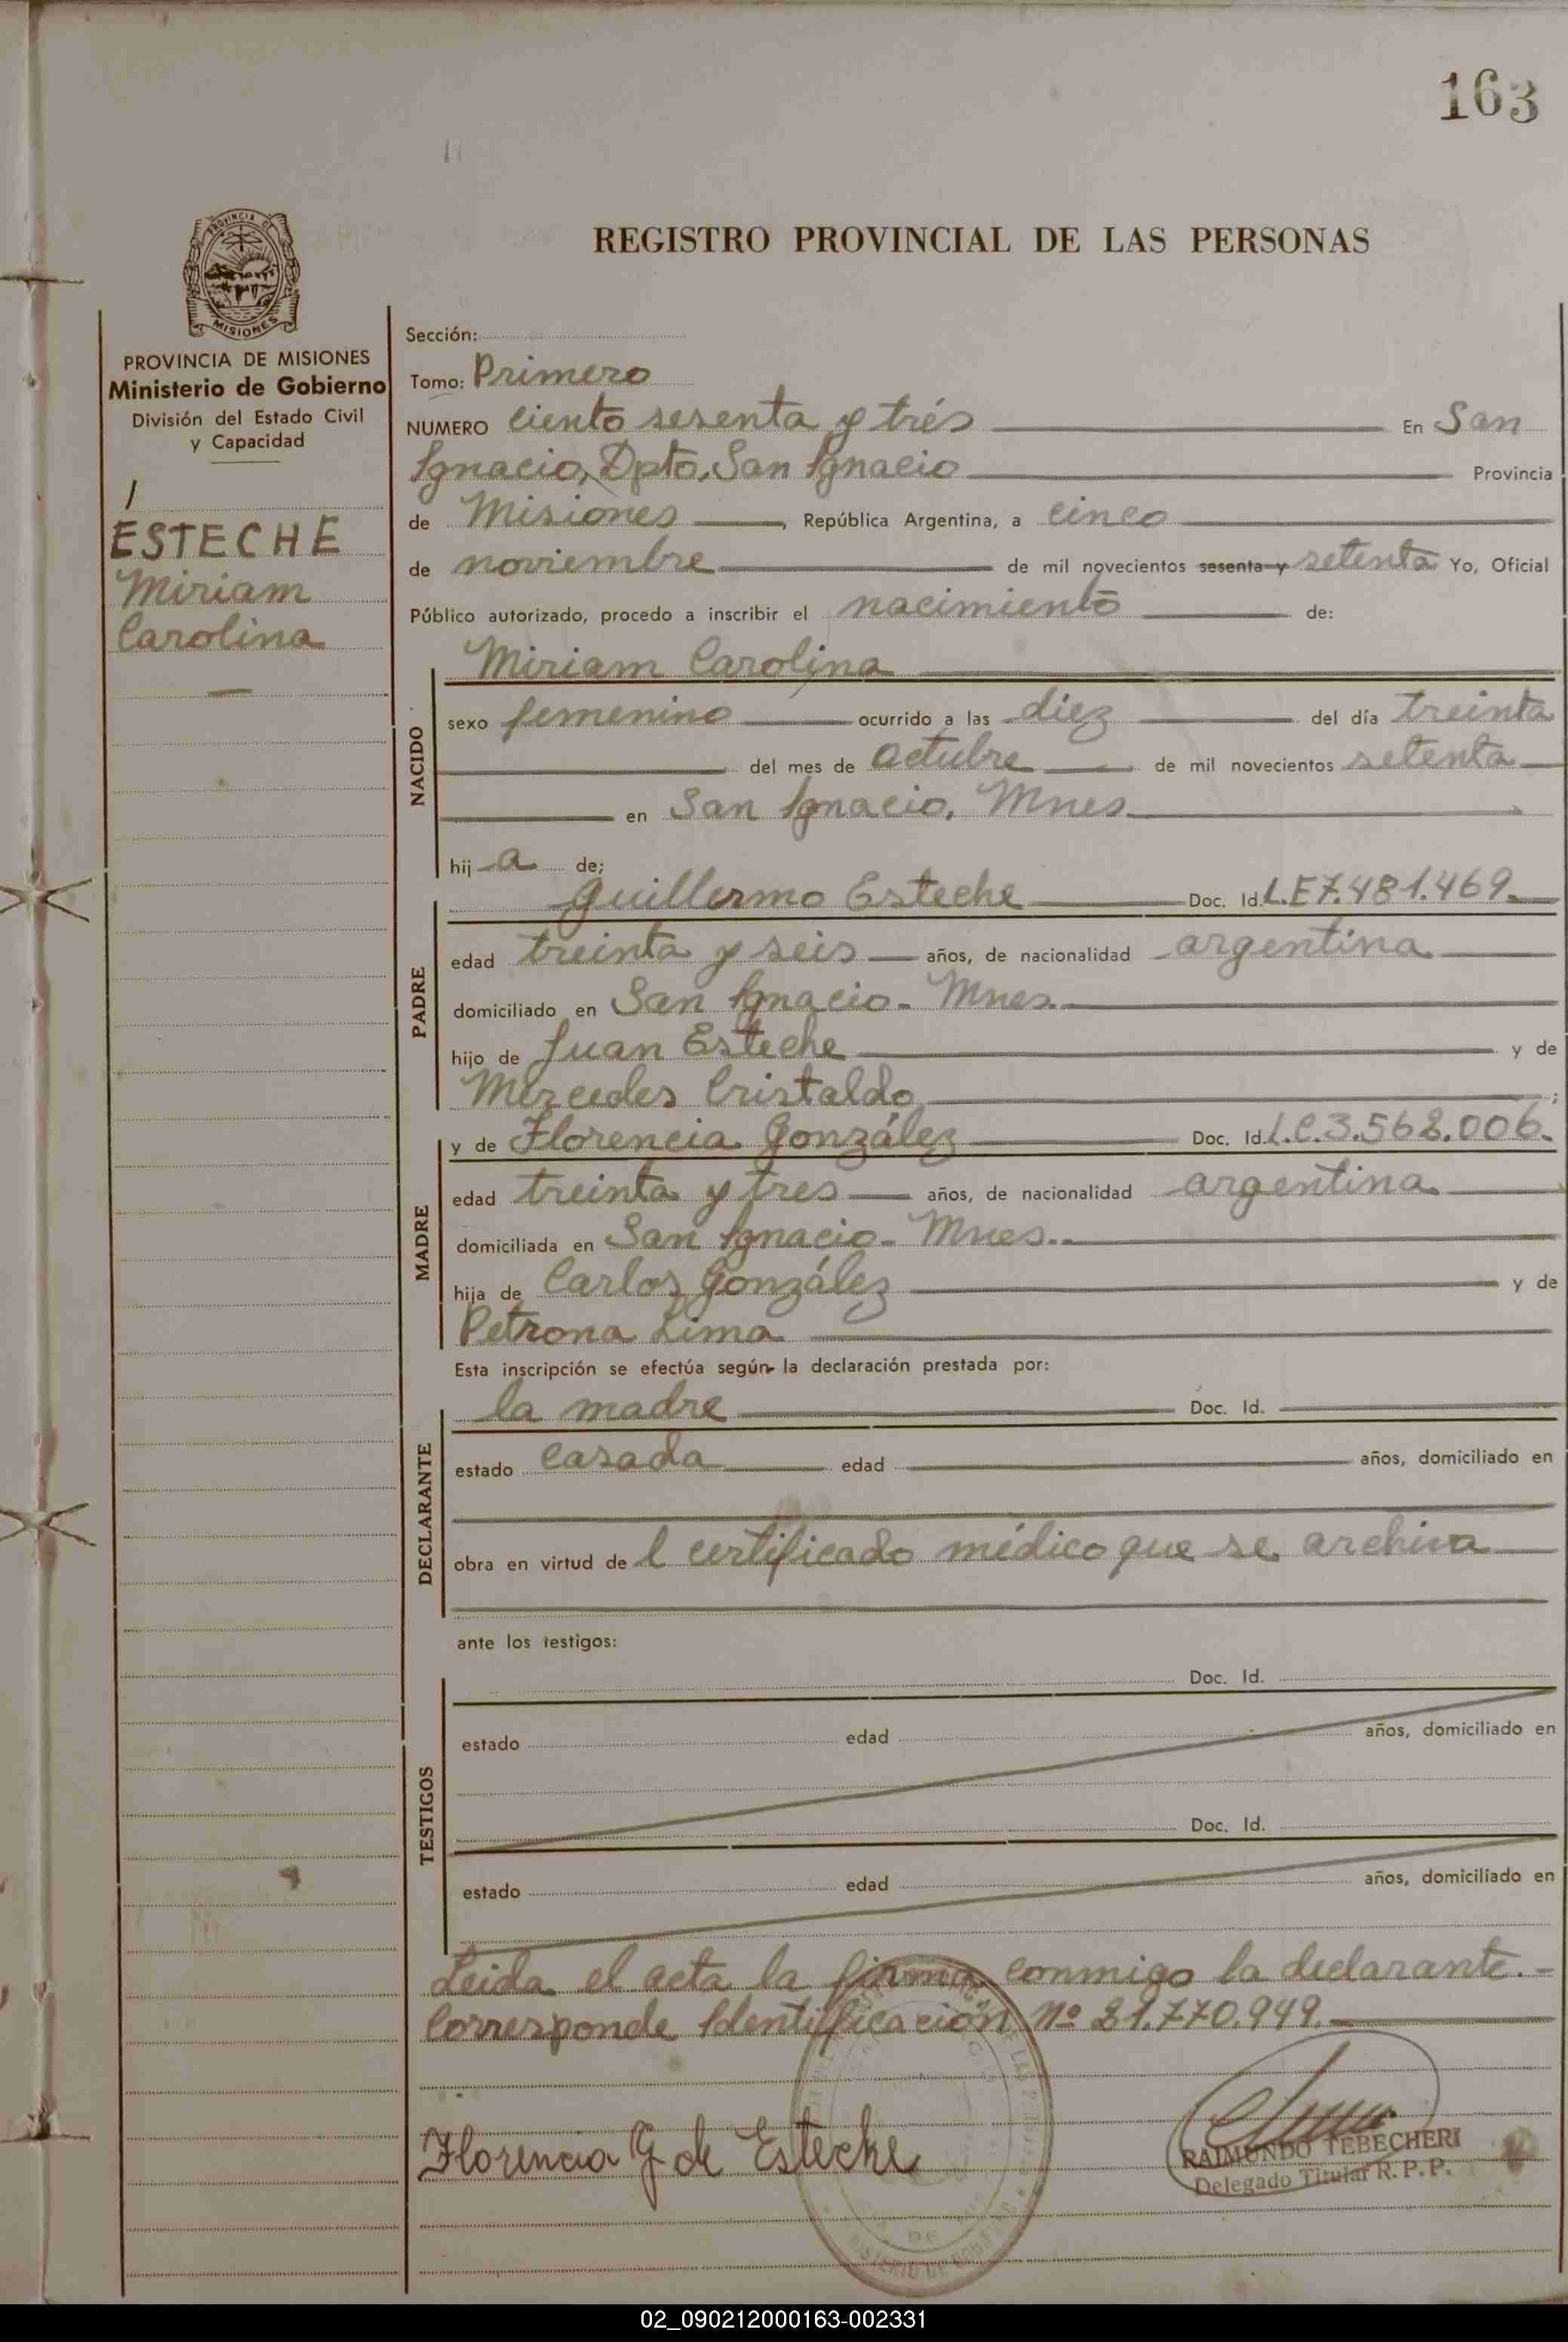 163
REGISTRO PROVINCIAL DE LAS PERSONAS
PROVINCIA DE
MISIONES
PROVINCIA DE MISIONES
Ministerio de Gobierno
División del Estado Civil
y Capacidad
ESTECHE
Miriam
Carolina
Sección:
Tomo: Primero
NUMERO Ciento sesenta y trés En San
Ignacio, Dpto. San Ignacio Provincia
de Misiones, República Argentina, a cinco
de noviembre de mil novecientos sesenta y setenta Yo, Oficial
Público autorizado, procedo a inscribir el nacimiento de:
Miriam Carolina
NACIDO
sexo femenino ocurrido a las diez del día treinta
del mes de octubre de mil novecientos setenta
en San Ignacio, Mnes
hij a de;
Guillermo Esteche Doc. Id. L.E 7.481.469.
PADRE
edad treinta y seis años, de nacionalidad argentina
domiciliado en San Ignacio - Mnes.
hijo de Juan Esteche y de
Mercedes Cristaldo ;
y de Florencia González Doc. Id. L.C. 3.568.006.
MADRE
edad treinta y tres años, de nacionalidad argentina
domiciliada en San Ignacio - Mnes.
hija de Carlos González y de
Petrona Lima
Esta inscripción se efectúa según la declaración prestada por:
la madre Doc. Id.
DECLARANTE
estado casada edad años, domiciliado en
obra en virtud de l certificado médico que se archiva
ante los testigos:
Doc. Id.
TESTIGOS
estado edad años, domiciliado en
Doc. Id.
estado edad años, domiciliado en
Leida el acta la firma conmigo la declarante.-
Corresponde Identificación Nº 21.770.949.-
Florencia G de Esteche
RAIMUNDO TEBECHERI
Delegado Titular R.P.P.
02_090212000163-002331